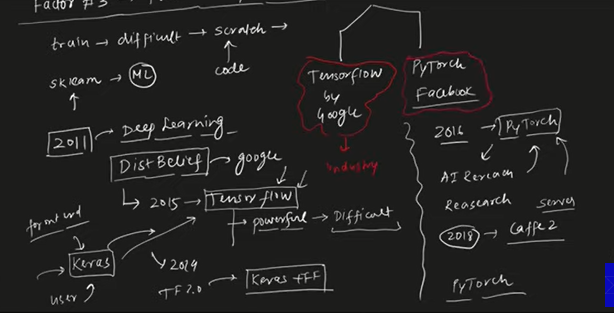 Factor #3
train → difficult → scratch →
code
sklearn → ML
2011 → Deep Learning
DistBelief → google
2015 → Tensorflow
powerful → Difficult
Keras
user
TF 2.0 → Keras + TF
Tensorflow
by
Google
Industry
PyTorch
Facebook
2016 → PyTorch
AI Research
server
2018 → Caffe2
PyTorch